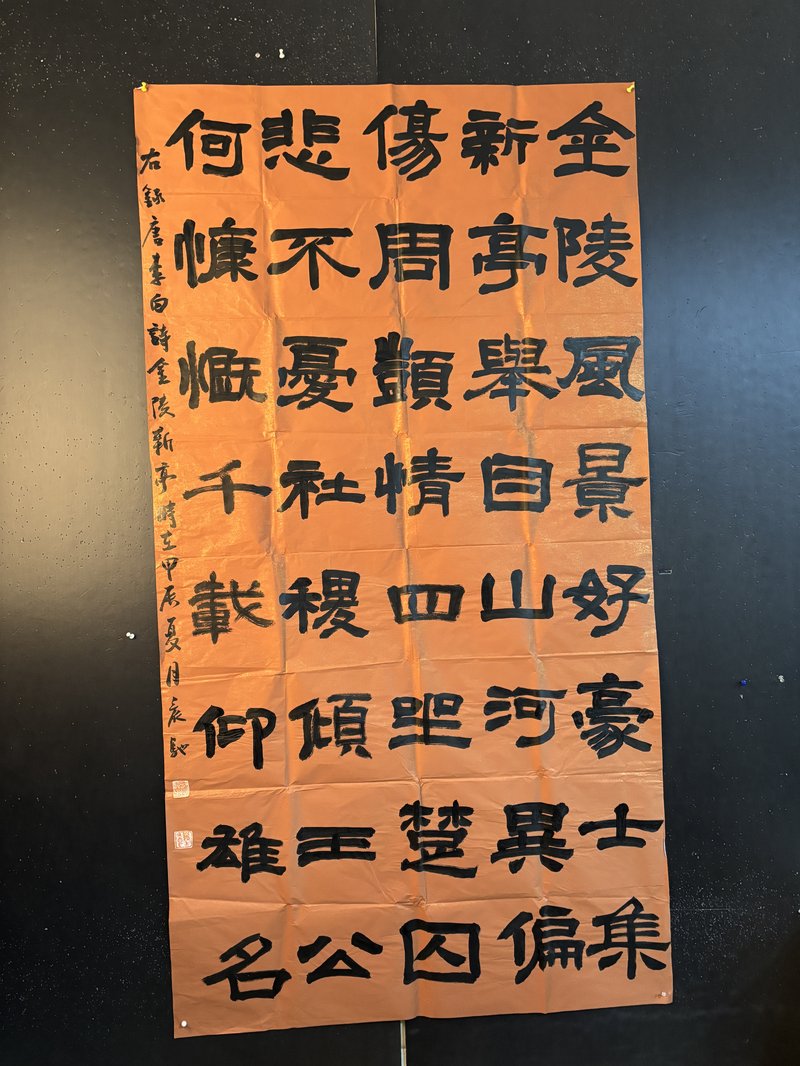 金陵風景好豪士集
新亭舉目山河異偏
傷周顗情四坐楚囚
悲不憂社稷傾王公
何慷慨千載仰雄名
右錄唐李白詩金陵新亭時在甲辰夏月袁馳